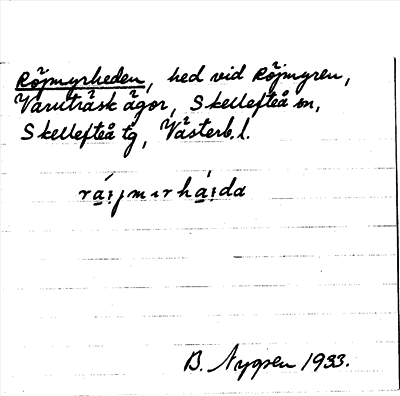 Röjmyrheden, hed vid Röjmyren,
Varuträsk ägor, Skellefteå sn,
Skellefteå tg, Västerb. l.
rá̱i̩jmırhá̱i̩da
B. Nygren 1933.